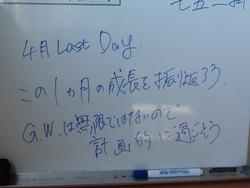 4月 Last Day.
この1ヵ月の成長を振り返ろう
G.W.は無限ではないので
計画的に過ごそう